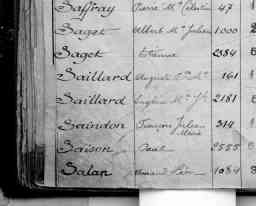 Saffray Pierre Mie Célestin 47
Saget Albert Mie Julien 1000
Saget Etienne 2384
Saillard Auguste 161
Saillard Eugène Mie 2181
Saindon François Julien 314
Marie
Saison Paul 2555
Salan 1084